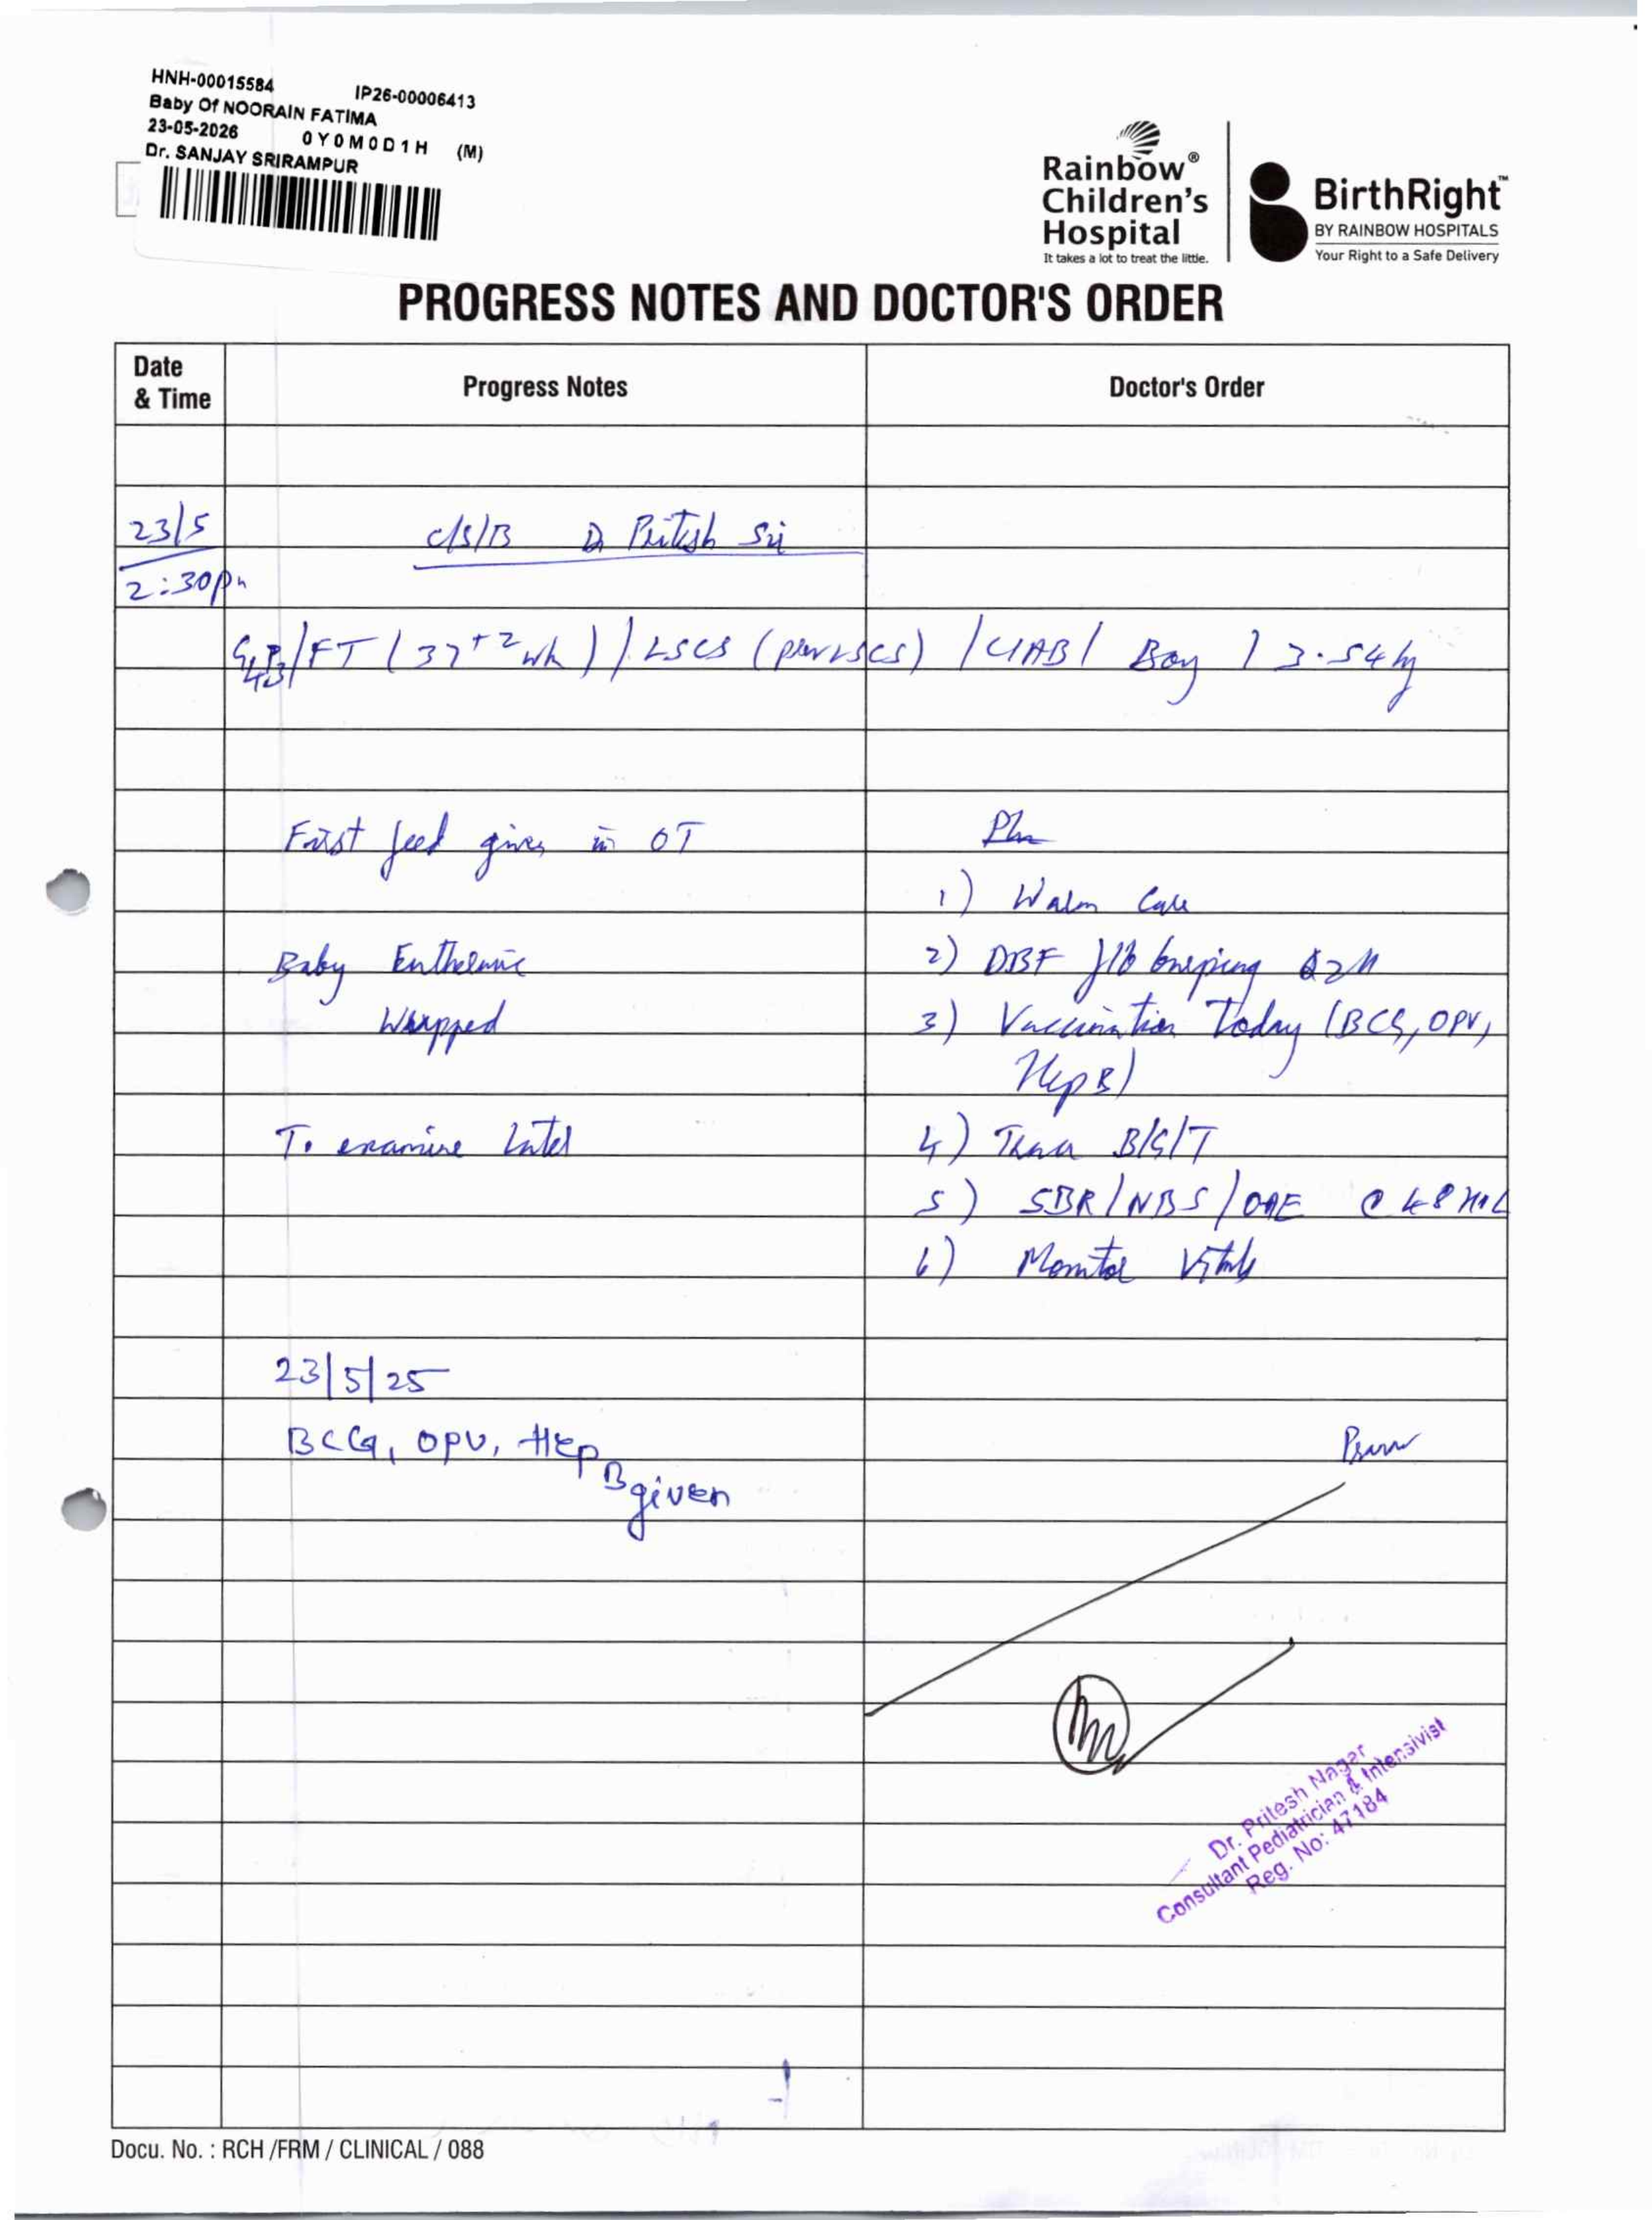 HNH-00015584 IP26-00006413
Baby Of NOORAIN FATIMA
23-05-2026 0Y0M0D1H (M)
Dr. SANJAY SRIRAMPUR
Rainbow®
Children's
Hospital
It takes a lot to treat the little.
BirthRight™
BY RAINBOW HOSPITALS
Your Right to a Safe Delivery
PROGRESS NOTES AND DOCTOR'S ORDER
Date & Time Progress Notes Doctor's Order
23/5 c/s/B Dr Pritesh Sir
2:30pm
G4P3/FT (37+2 wk) / LSCS (prev LSCS) / CIAB / Boy / 3.54 kg
First feed given in OT Plan
1) Warm Care
Baby Euthermic 2) DBF f/b burping Q2H
Wrapped 3) Vaccination Today (BCG, OPV,
Hep B)
To examine later 4) B/G/T
5) SBR/NBS/OAE @ 48
6) Monitor Vitals
23/5/25
BCG, OPV, Hep B given
Dr. Pritesh Nagar
Consultant Pediatrician & Intensivist
Reg. No: 47184
Docu. No. : RCH /FRM / CLINICAL / 088